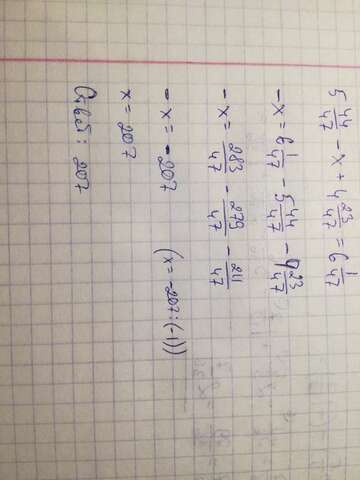 5 44/47 - x + 4 23/47 = 6 1/47
-x = 6 1/47 - 5 44/47 - 4 23/47
-x = 283/47 - 279/47 - 211/47
-x = -207 (x = -207 : (-1))
x = 207
Ответ: 207